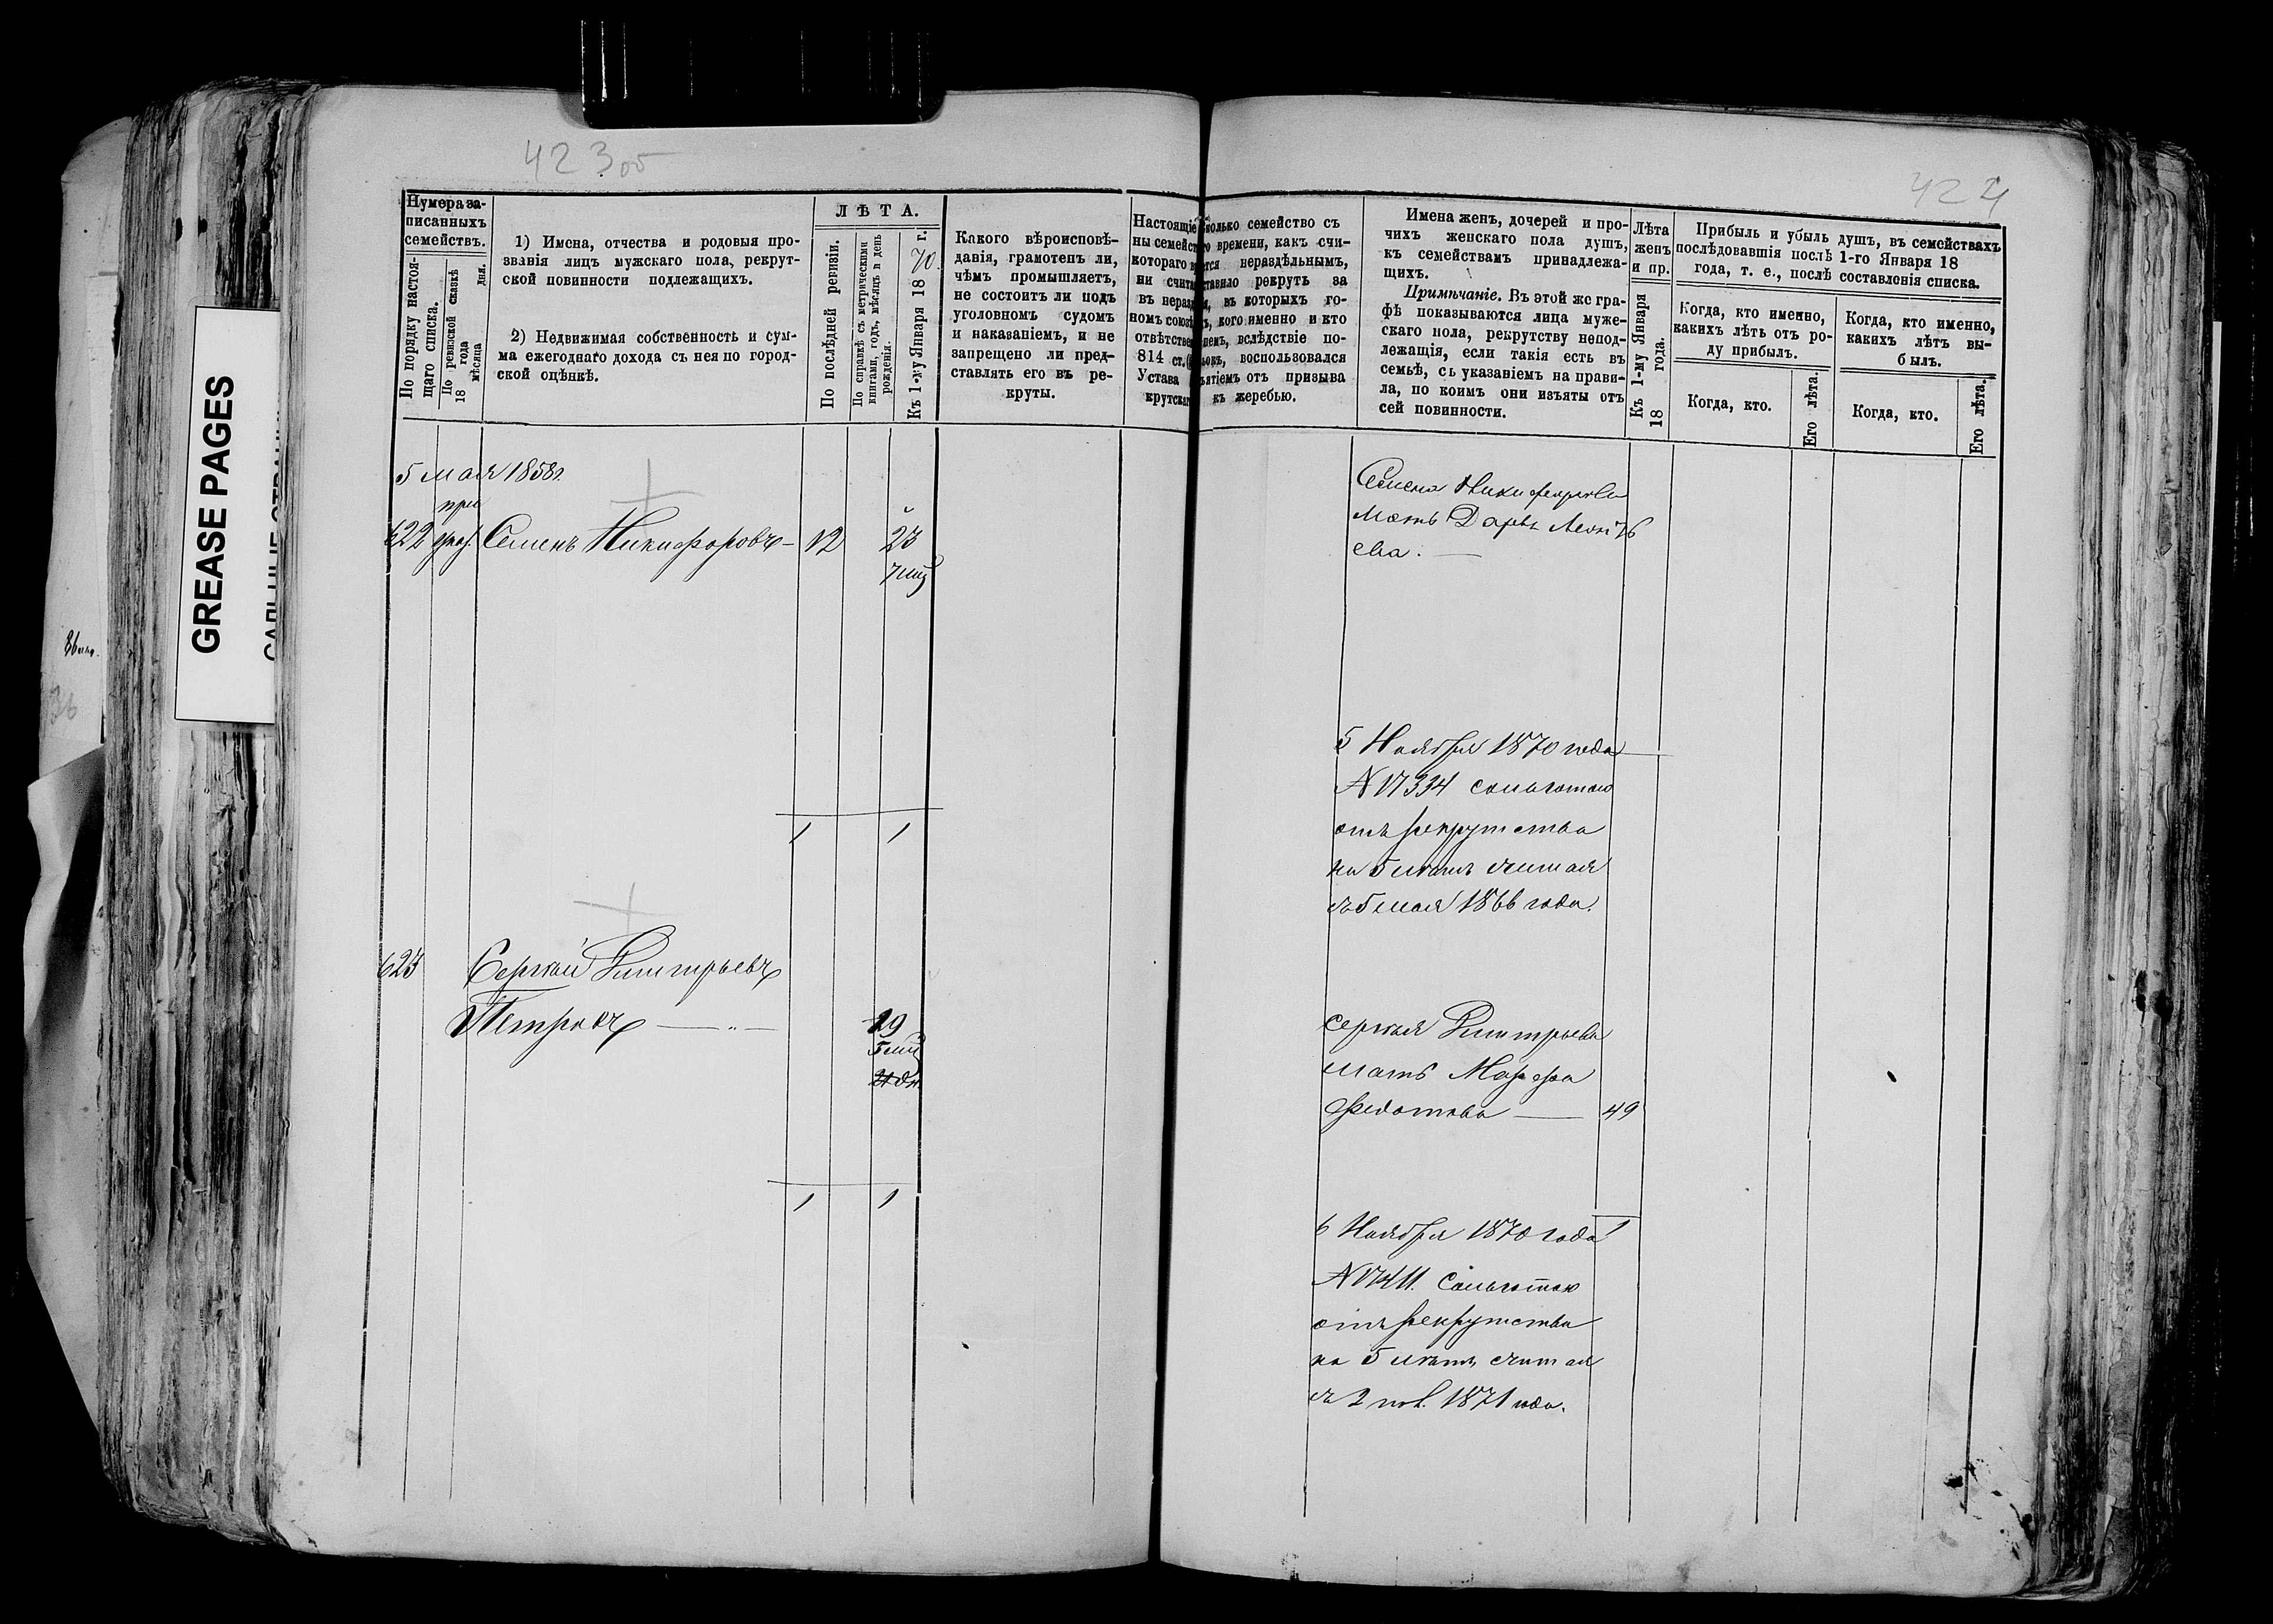 423 об
424
GREASE PAGES
Нумера за-
писанныхъ
семействъ.
По порядку настоя-
щаго списка.
По ревизской сказкѣ
18 года
мѣсяца дня.
1) Имена, отчества и родовыя про-
званія лицъ мужскаго пола, рекрут-
ской повинности подлежащихъ.
2) Недвижимая собственность и сум-
ма ежегоднаго дохода съ нея по город-
ской оцѣнкѣ.
ЛѢТА.
По послѣдней ревизіи.
По справкѣ съ метрическими
книгами, годъ, мѣсяцъ и день
рожденія.
Къ 1-му Января 1870 г.
Какого вѣроисповѣ-
данія, грамотенъ ли,
чѣмъ промышляетъ,
не состоитъ ли подъ
уголовномъ судомъ
и наказаніемъ, и не
запрещено ли пред-
ставлять его въ ре-
круты.
Настоящіе
ны семейст
котораго в
ни счита
въ нераз
номъ союз
отвѣтстве
814 ст.
Устава
крутска
сколько семейство съ
го времени, какъ счи-
ется нераздѣльнымъ,
ставило рекрутъ за
въ которыхъ го-
кого именно и кто
вслѣдствіе по-
воспользовался
ятіемъ отъ призыва
къ жеребью.
Имена женъ, дочерей и про-
чихъ женскаго пола душъ,
къ семействамъ принадлежа-
щихъ.
Примѣчаніе. Въ этой же гра-
фѣ показываются лица муже-
скаго пола, рекрутству непод-
лежащія, если такія есть въ
семьѣ, съ указаніемъ на прави-
ла, по коимъ они изъяты отъ
сей повинности.
Лѣта
женъ
и пр.
Къ 1-му Января
18 года.
Прибыль и убыль душъ, въ семействахъ
послѣдовавшія послѣ 1-го Января 18
года, т. е., послѣ составленія списка.
Когда, кто именно,
какихъ лѣтъ отъ ро-
ду прибылъ.
Когда, кто.
Его лѣта.
Когда, кто именно,
какихъ лѣтъ вы-
былъ.
Когда, кто.
Его лѣта.
5 мая 1858г.
при
622 Семенъ Никифоровъ — 12 23
7 мѣс
1 1
623 Сергѣй Дмитріевъ
Петровъ — 19
5 мѣс
1 1
Семена Никифорова
Мать Дарья Леонть
ева.
5 Ноября 1870 года
N 17334 сольготою
отъ рекрутства
на 5 лѣтъ считая
съ 5 мая 1866 года.
Сергѣя Дмитріева
мать Марфа
Федотова — 49
1
6 Ноября 1870 года
N 17411. Сольготою
отъ рекрутства
на 5 лѣтъ считая
съ 2 ноя. 1871 года.